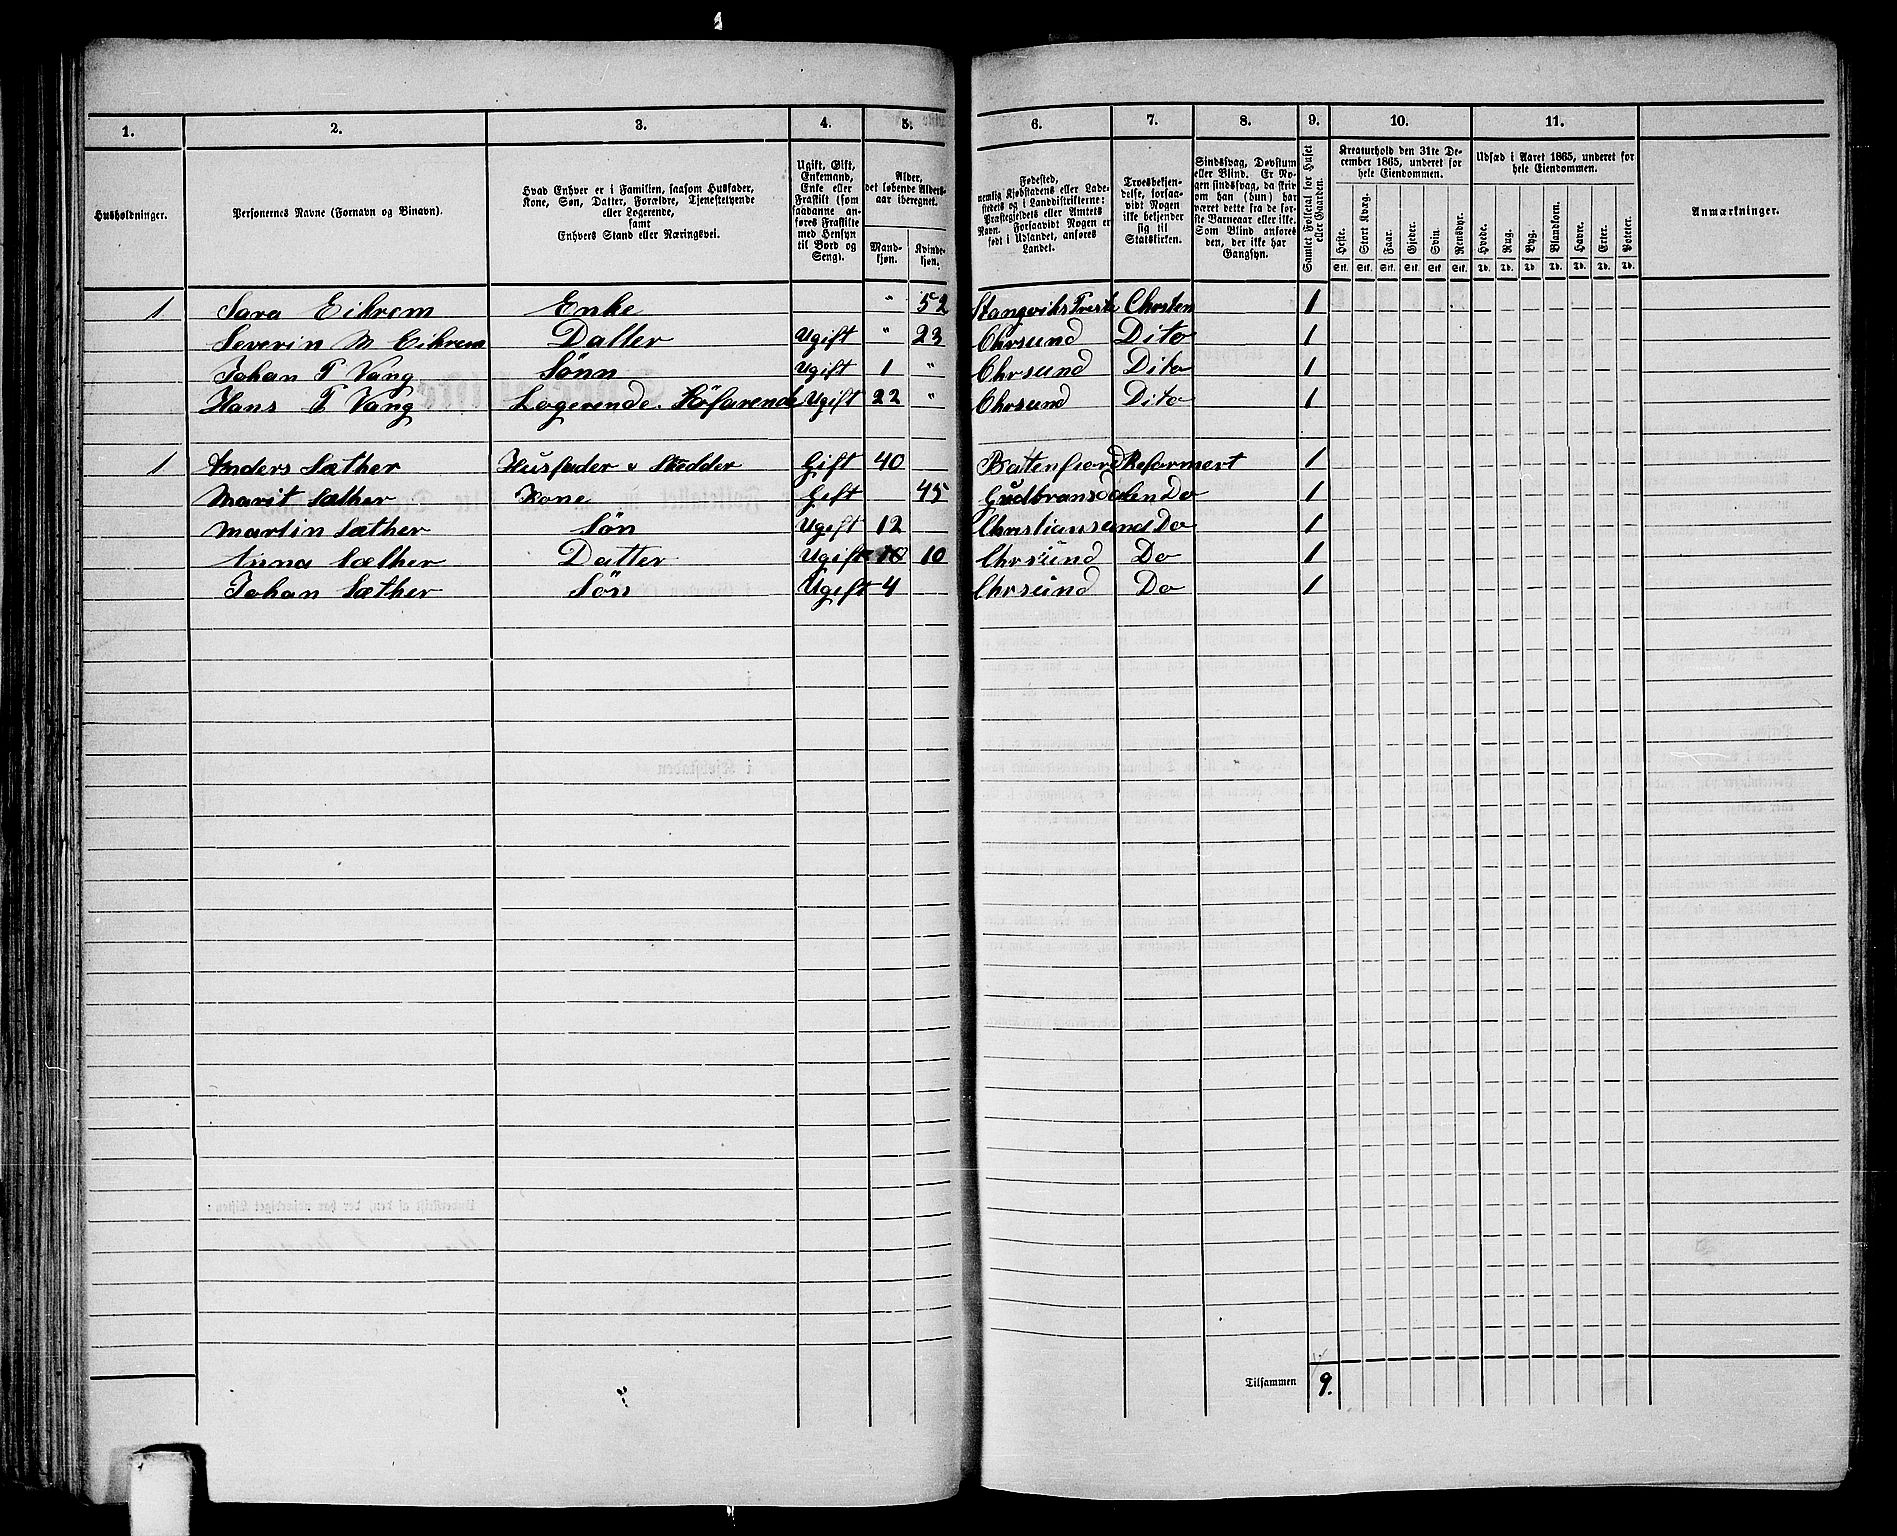 1. 2. 3. 4. 5. 6. 7. 8. 9. 10. 11.
Husholdninger.
Personernes Navne (Fornavn og Binavn).
Hvad Enhver er i Familien, saasom Husfader,
Kone, Søn, Datter, Forældre, Tjenestetyende
eller Logerende,
samt
Enhvers Stand eller Næringsvei.
Ugift, Gift,
Enkemand,
Enke eller
Fraskilt (som
saadanne an-
føres Fraskilte
med Hensyn
til Bord og
Seng).
Alder,
det løbende Alders-
aar iberegnet.
Mand-
kjøn.
Kvinde-
kjøn.
Fødested,
nemlig Kjøbstadens eller Lade-
stedets og i Landdistrikterne:
Præstegjeldets eller Amtets
Navn. Forsaavidt Nogen er
født i Udlandet, anføres
Landet.
Troesbekjen-
delse, forsaa-
vidt Nogen
ikke bekjender
sig til
Statskirken.
Sindssvag, Døvstum
eller Blind. Er No-
gen sindssvag, da skri-
ves om han (hun) har
været dette fra de før-
ste Barneaar eller ikke.
Som Blind anføres
den, der ikke har
Gangsyn.
Samlet Folketal for Huset
eller Gaarden.
Kreaturhold den 31te De-
cember 1865, underet for
hele Eiendommen.
Heste. Stort Kvæg. Faar. Gjeder. Svin. Rensdyr.
Stk. Stk. Stk. Stk. Stk. Stk.
Udsæd i Aaret 1865, underet for
hele Eiendommen.
Hvede. Rug. Byg. Blandkorn. Havre. Erter. Poteter.
Td. Td. Td. Td. Td. Td. Td.
Anmærkninger.
1 Sara Eikrem Enke " 52 Stangviks Preste Chrsten 1
Severin M Eikrem Datter Ugift " 23 Chrsund Dito 1
Johan T Vang Sønn Ugift 1 " Chrsund Dito 1
Hans T Vang Logerende. Söfarende Ugift 22 " Chrsund Dito 1
1 Anders Sæther Husfader Gift 40 Batenfiord Reformert 1
Marit Sæther Kone Gift 45 Gudbransdalen Do 1
Martin Sæther Søn Ugift 12 Christiansund Do 1
Anna Sæther Datter Ugift 10 Chrsund Do 1
Johan Sæther Søn Ugift 4 Chrsund Do 1
Tilsammen 9.